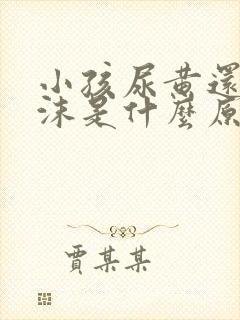 小孩尿黃還
沫是什麼原
賈某某